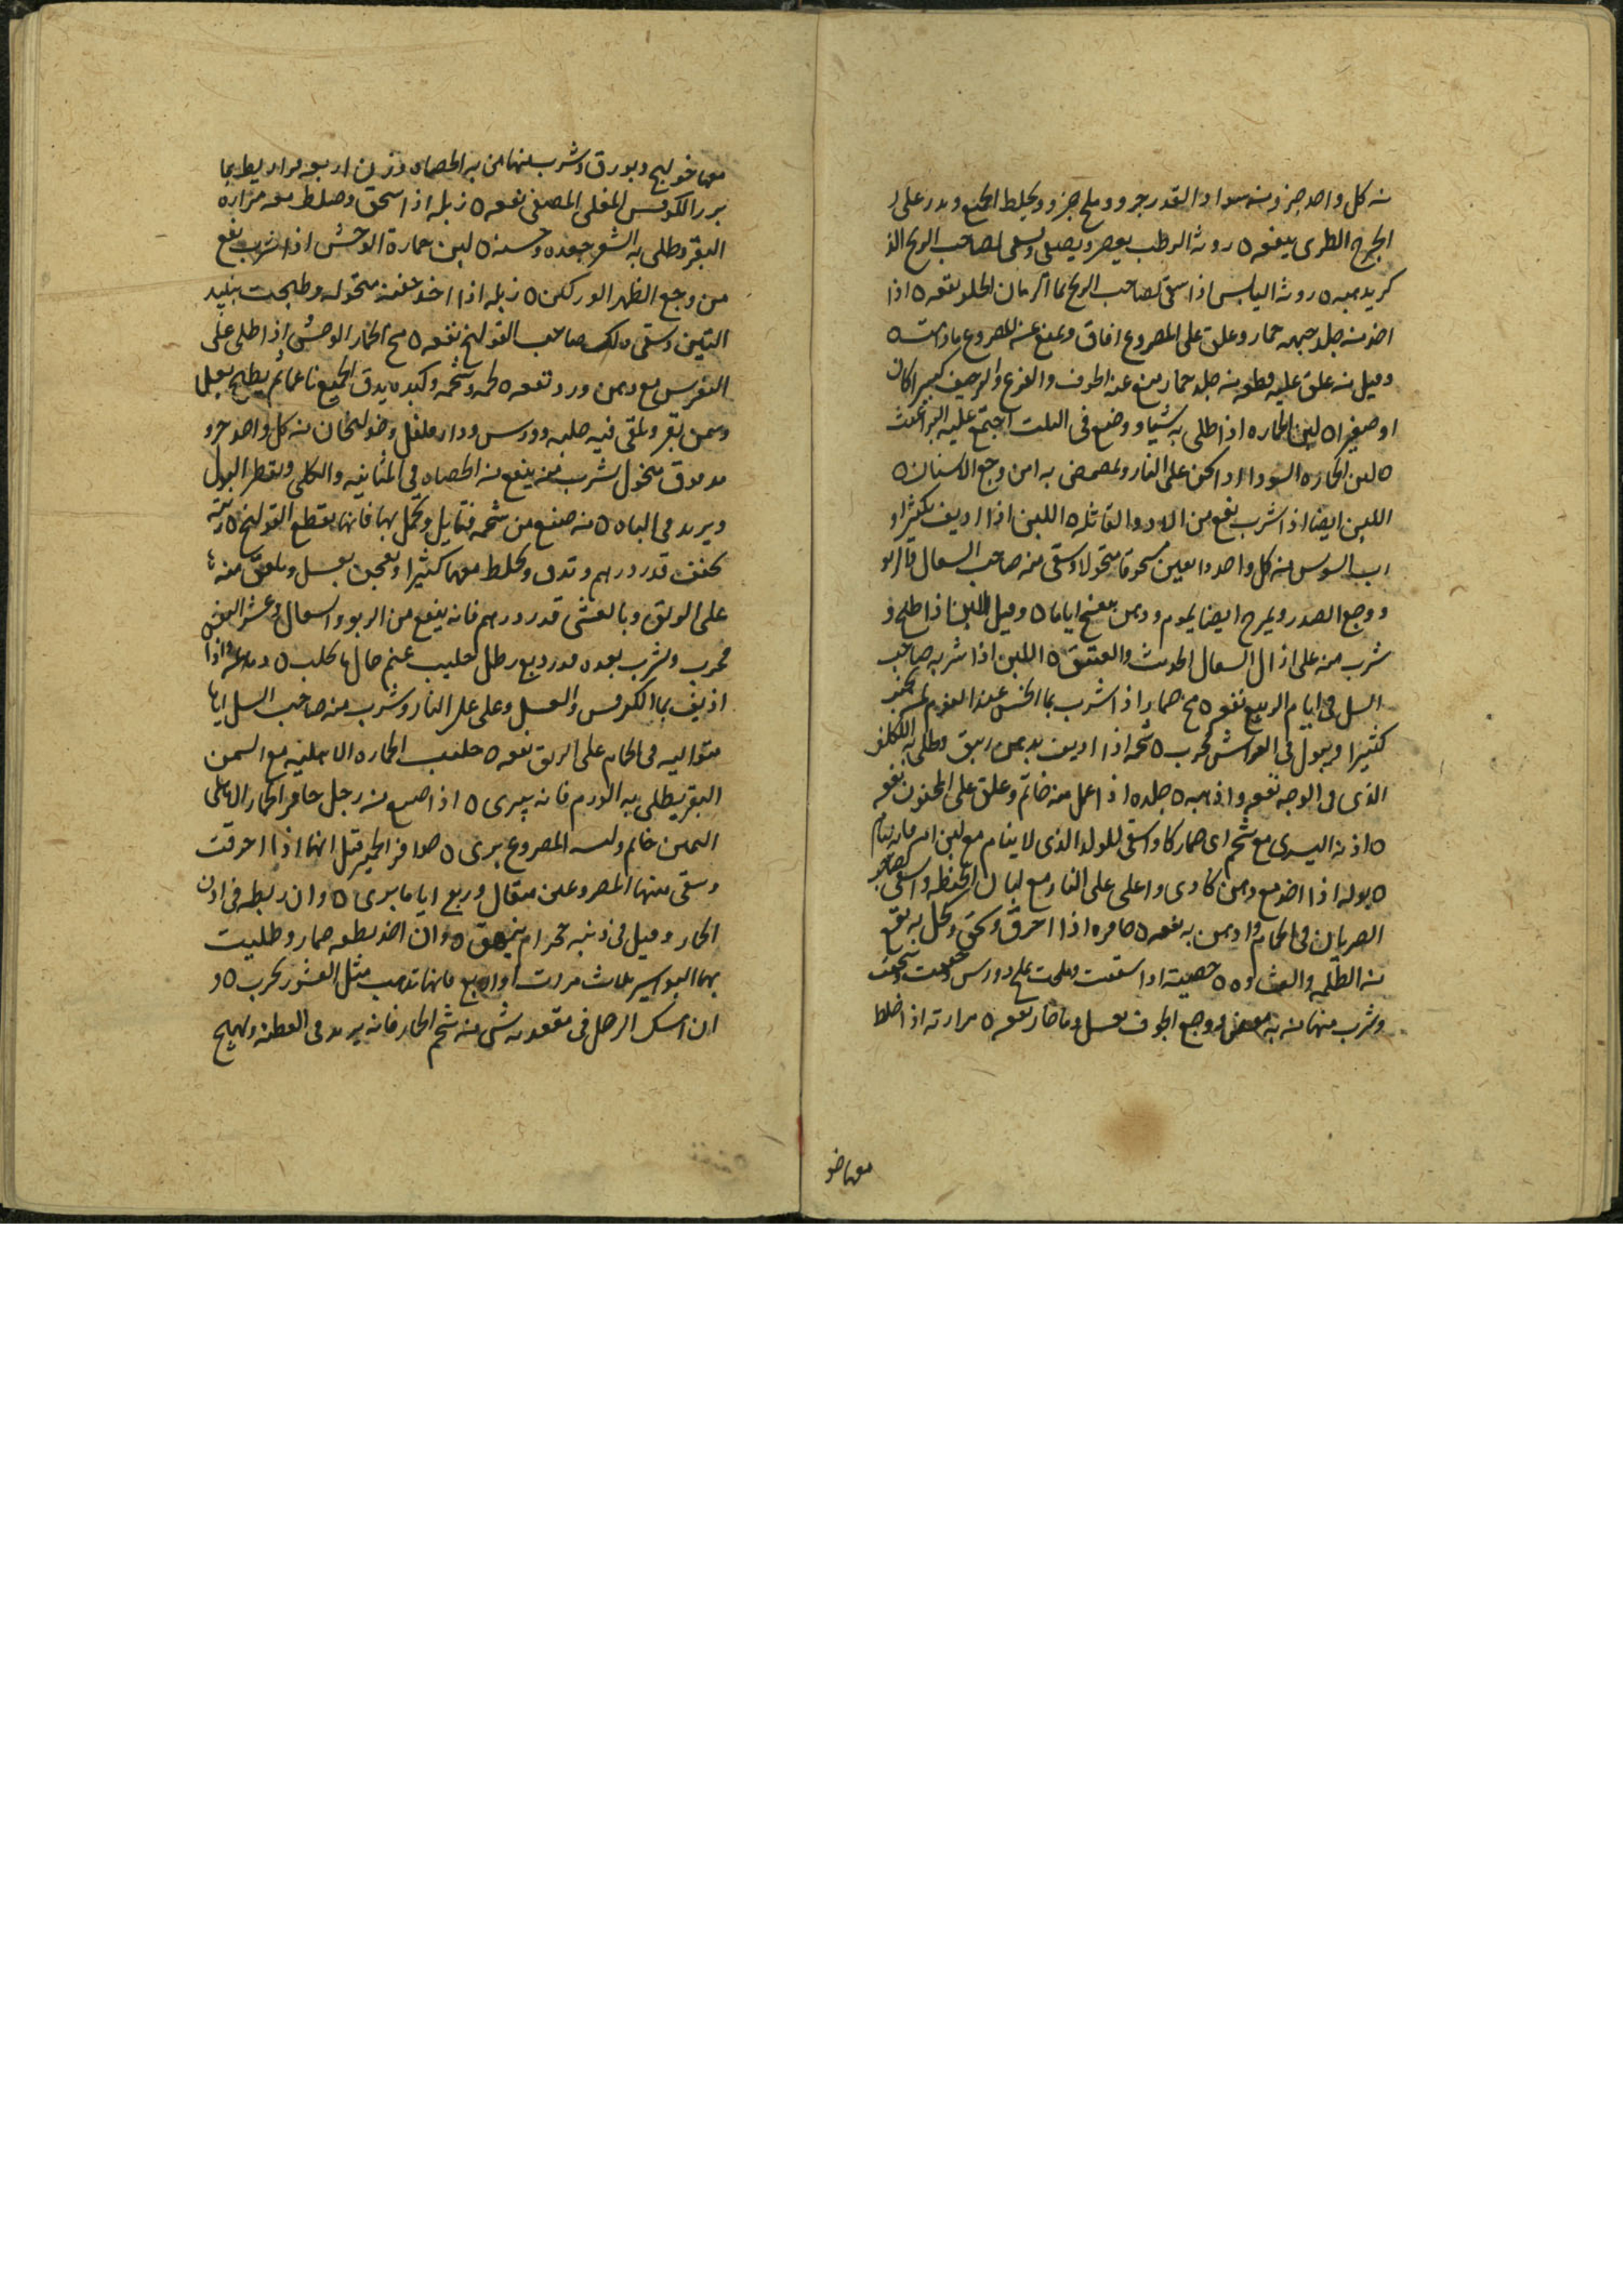 منه كل واحد جزو ومنه سواد القدر جزو وملح جزو ويخلط الجميع ويدر على
الجرح الطرى ينفعه ه روثه الرطب يعصر ويصفى ويسقى لصاحب الريح الذ
روثه اليابس اذا سقى لصاحب الريح بما الرمان الحلو نفعه ه اذا
اخذ منه جلد جبهه حمار وعلق على المصروع افاق ومنع عنه المصروع مادامت ه
وقيل منه علق عليه قطعه منه جلد حمار منع عنه الخوف والفزع والرجيف كبيرا كان
او صغيرا ه لبن الحماره اذا طلى به شيا ووضع فى البيت اجتمع عليه البراغيث
ه لبن الحماره السودا اذا سخن على النار وتمضمض به امن وجع الاسنان ه
اللبن ايضا اذا شرب نفع من الادويه القاتله ه اللبن اذا اديف بكثيرا و
رب السوس منه كل واحد دانقين مسحوقا منخولا وسقى منه صاحب السعال
ووجع الصدر ويمرخ ايضا بموم ودهن بنفسج اياما ه وقيل اللبن اذا طبخ و
شرب منه على ازال السعال الحديث والعتيق ه اللبن اذا شربه صاحب
السل فى ايام الربيع نفعه ه مخ حمار اذا شرب بما الخس عند النوم
كثيرا ويبول فى الفراش مجرب ه شحمه اذا اديف بدهن زيبق وطلى به الكلف
الذى فى الوجه نفعه واذهبه ه جلده اذا عمل منه خاتم وعلق على المجنون نفعه
ه اذنه اليسرى مع شحم اى حمار كان واسقى للولد الذى لا ينام مع لبن امه فانه ينام
ه بوله اذا اخذ مع دهن كادى واغلى على النار مع لباب الحنطه واسقى
الصربان فى الحمام وادهن به نفعه ه حافره اذا احرق وسحق وكحل به نفع
منه الظلمه والغشاوه ه خصيته اذا شققت وملحت بملح دورس وجففت وسحقت
وشرب منها منه به مغص ووجع الجوف بعسل وما حار نفعه ه مرارته اذا خلط
معها خو
معها خولنج وبورق وشرب منها من به الحصاه وزن اربعه قراريط بما
بزر الكرفس المغلى المصفى نفعه ه زبله اذا سحق وخلط معه مراره
البقر وطلى به الشعر جعده وحسنه ه لبن حمارة الوحش اذا شرب نفع
من وجع الظهر والوركين ه زبله اذا اخذ حفنه منخوله وطبخت بنبيد
التين وسقى ذلك صاحب القولنج نفعه ه مخ الحمار الوحشى اذا طلى على
النقرس مع دهن ورد نفعه ه لحمه وشحمه وكبده يدق الجميع ناعما ثم يطبخ بعسل
وسمن بقر ويلقى فيه حلبه وورس ودارفلفل وخولنجان منه كل واحد جزو
مدقوق منخول يشرب منه ينفع منه الحصاه فى المثانه والكلى وتقطر البول
ويزيد فى الباه ه منه صنع من شحمه فتايل وتحمل بها فانها تقطع القولنج ه ريته
تجفف قدر درهم وتدق ويخلط معها كثيرا وتعجن بعسل ويلعق منها
على الريق وبالعشى قدر درهم فانه ينفع من الربو والسعال وعسر النفس
مجرب ويشرب بعده قدر ربع رطل حليب غنم حال ما يحلب ه دماغه اذا
اذيف بما الكرفس والعسل وغلى على النار وشرب منه صاحب السل اياما
متواليه فى الحمام على الريق نفعه ه حليب الحماره الاهليه مع السمن
البقر يطلى به الورم فانه يبرى ه اذا صنع منه رجل حافر الحمار الاهلى
اليمين خاتم ولبسه المصروع برى ه حوافر الحمير قيل انها اذا احرقت
وسقى منها المصروعين مثقال وربع اياما برى ه وان ربطه فى اذن
الحمار وقيل فى ذنبه حجرا لم ينهق ه وان اخذ بطنه حمار وطليت
بها البواسير ثلاث مرات او اربع فانها تذهب مثل القشور مجرب ه و
ان امسك الرجل فى مقعدته شى منه شحم الحمار فانه يزيد فى الفطنه ويهيج